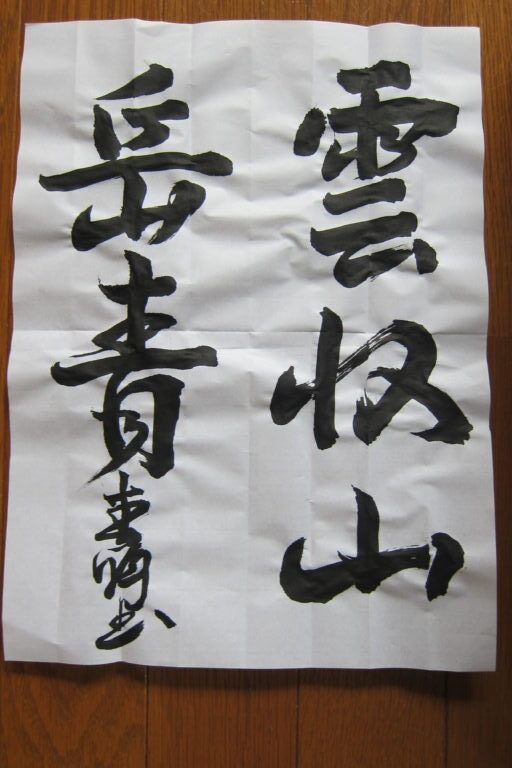 雲収山
岳青
書